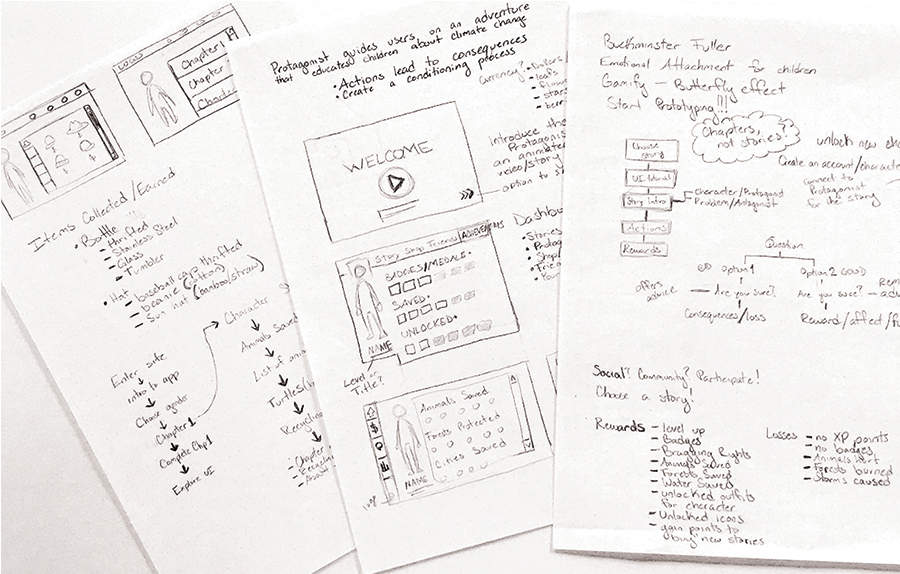 LOGO
Chapter 1
Chapter
Chapter
Items Collected/Earned
• Bottle
– thrifted
– Stainless Steel
– Glass
– Tumbler
• Hat
– baseball cap thrifted
– beanie (cotton)
– Sun hat (bamboo/straw)
Enter site
Intro to app
Choose avatar
Chapter 1
Complete Chp 1
Explore UI
Character
Animals Saved
List of
Turtles
Recycling
– Chapter
Protagonist guides users, on an adventure
that educates children about climate change
• Actions lead to consequences
• Create a conditioning process
Currency?
WELCOME
Introduce the
Protagonist
an animated
video/story
option to
Story Shop Friends ACHIEVEMENTS
BADGES/MEDALS
SAVED
UNLOCKED
NAME
Level or
Title?
• Stories
Animals Saved
Forests Protected
Cities Saved
NAME
Buckminster Fuller
Emotional Attachment for children
Gamify – Butterfly effect
Start Prototyping!!!
Chapters,
not stories?
unlock new
Create an account/character
connect to
Protagonist
for the story
Choose
story
UI tutorial
Story Intro
Character/Protagonist
Problem/Antagonist
Actions
Rewards
Question
Option 1
Option 2 GOOD
offers
advice
Are you sure?
Are you sure?
Consequences/loss
Reward/affect/
Social? Community? Participate!
Choose a story!
Rewards
– level up
– Badges
– Bragging Rights
– Animals Saved
– Forests Saved
– Water Saved
– unlocked outfits
for character
– Unlocked icons
– gain points to
"buy" new stories
Losses
– no XP points
– no badges
– Animals hurt
– Forests burned
– Storms caused